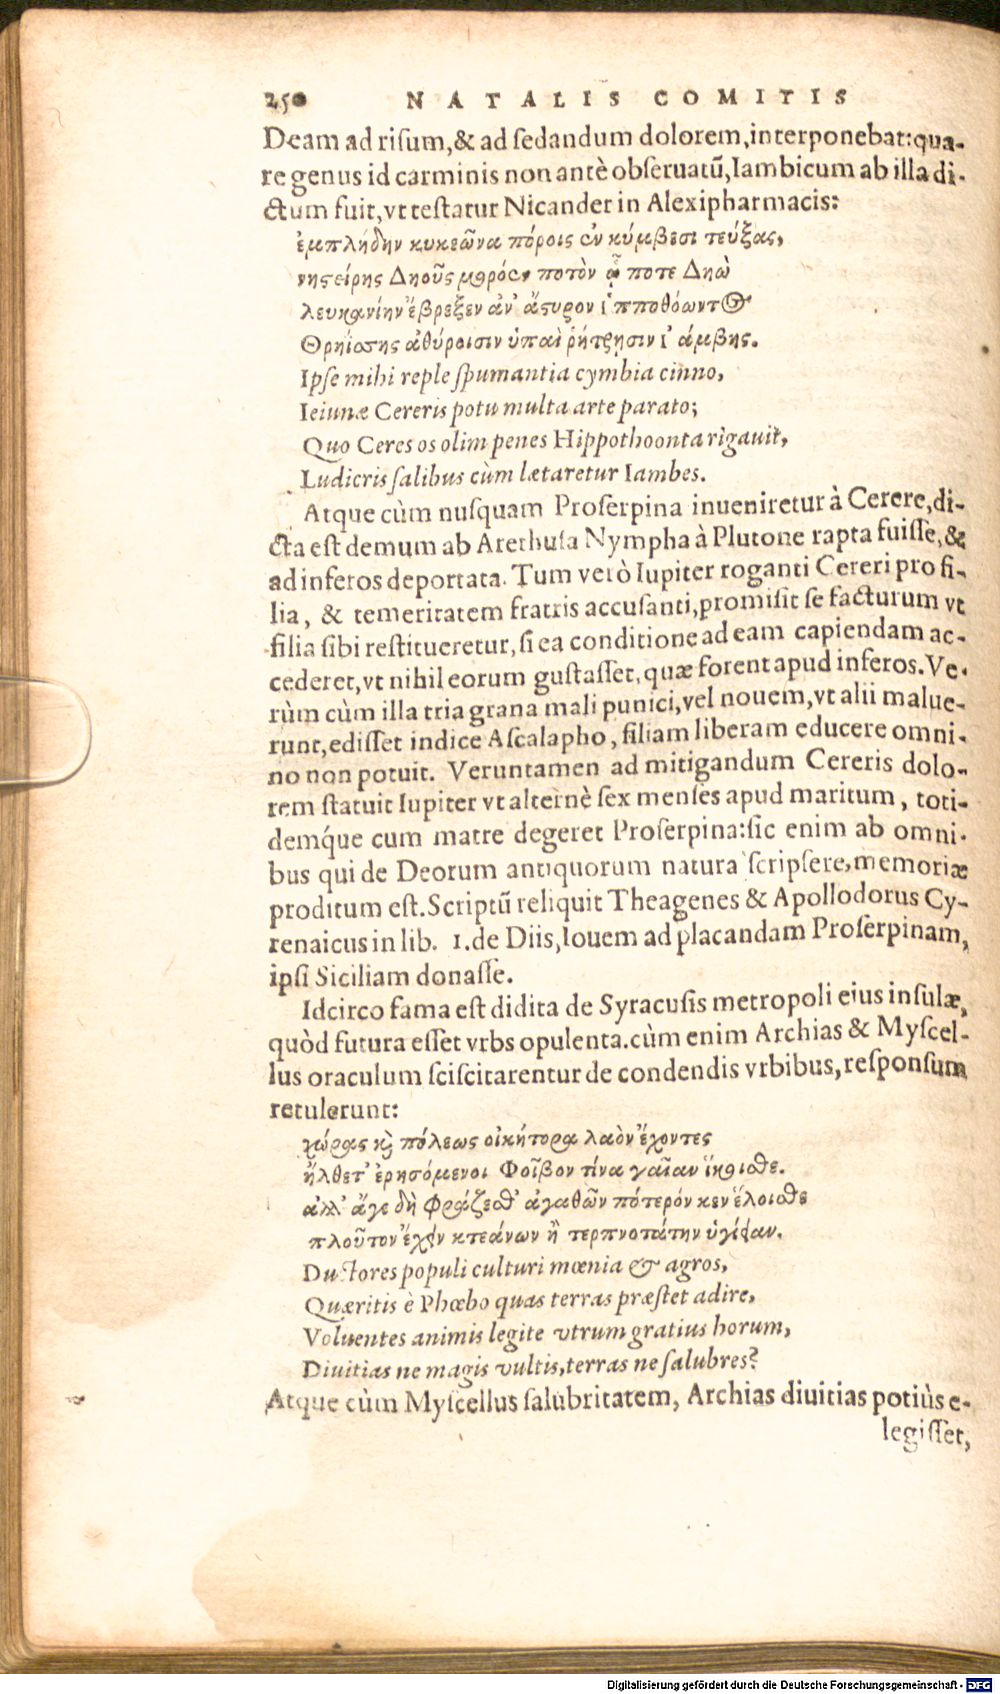 250 NATALIS COMITIS
Deam ad risum,& ad sedandum dolorem,interponebat:qua-
re genus id carminis non antè obseruatũ,Iambicum ab illa di-
ctum fuit,vt testatur Nicander in Alexipharmacis:
ἐμπλήδην κυκεῶνα πόροις ἐν κύμβεσι τεύξας,
νηστείρης Δηοῦς μορόεν ποτὸν ᾧ ποτε Δηὼ
λευκανίην ἔβρεξεν ἀν' ἄστυρον ἱπποθόωντος
Θρηίσσης ἀθύροισιν ὑπαὶ ῥήτρῃσιν ἰάμβης.
Ipse mihi reple spumantia cymbia cinno,
Ieiunæ Cereris potu multa arte parato;
Quo Ceres os olim penes Hippothoonta rigauit,
Ludicris salibus cùm lætaretur Iambes.
Atque cùm nusquam Proserpina inueniretur à Cerere,di-
cta est demum ab Arethusa Nympha à Plutone rapta fuisse,&
ad inferos deportata. Tum verò Iupiter roganti Cereri pro fi-
lia, & temeritatem fratris accusanti,promisit se facturum vt
filia sibi restitueretur,si ea conditione ad eam capiendam ac-
cederet,vt nihil eorum gustasset,quæ forent apud inferos.Ve-
rùm cùm illa tria grana mali punici,vel nouem,vt alii malue-
runt,edisset indice Ascalapho,filiam liberam educere omni-
no non potuit. Veruntamen ad mitigandum Cereris dolo-
rem statuit Iupiter vt alternè sex menses apud maritum, toti-
demq́ue cum matre degeret Proserpina:sic enim ab omni-
bus qui de Deorum antiquorum natura scripsere,memoriæ
proditum est.Scriptũ reliquit Theagenes & Apollodorus Cy-
renaicus in lib. 1.de Diis,Iouem ad placandam Proserpinam,
ipsi Siciliam donasse.
Idcirco fama est didita de Syracusis metropoli eius insulæ,
quòd futura esset vrbs opulenta.cùm enim Archias & Myscel-
lus oraculum sciscitarentur de condendis vrbibus,responsum
retulerunt:
χώρας καὶ πόλεως οἰκήτορα λαὸν ἔχοντες
ἤλθετ' ἐρησόμενοι Φοῖβον τίνα γαῖαν ἵκησθε.
ἀλλ' ἄγε δὴ φράζεσθ' ἀγαθῶν πότερόν κεν ἕλοισθε
πλοῦτον ἔχειν κτεάνων ἢ τερπνοτάτην ὑγίειαν.
Ductores populi culturi mœnia & agros,
Quæritis è Phœbo quas terras præstet adire,
Voluentes animis legite vtrum gratius horum,
Diuitias ne magis vultis,terras ne salubres?
Atque cùm Myscellus salubritatem, Archias diuitias potiùs e-
legisset,
Digitalisierung gefördert durch die Deutsche Forschungsgemeinschaft - DFG